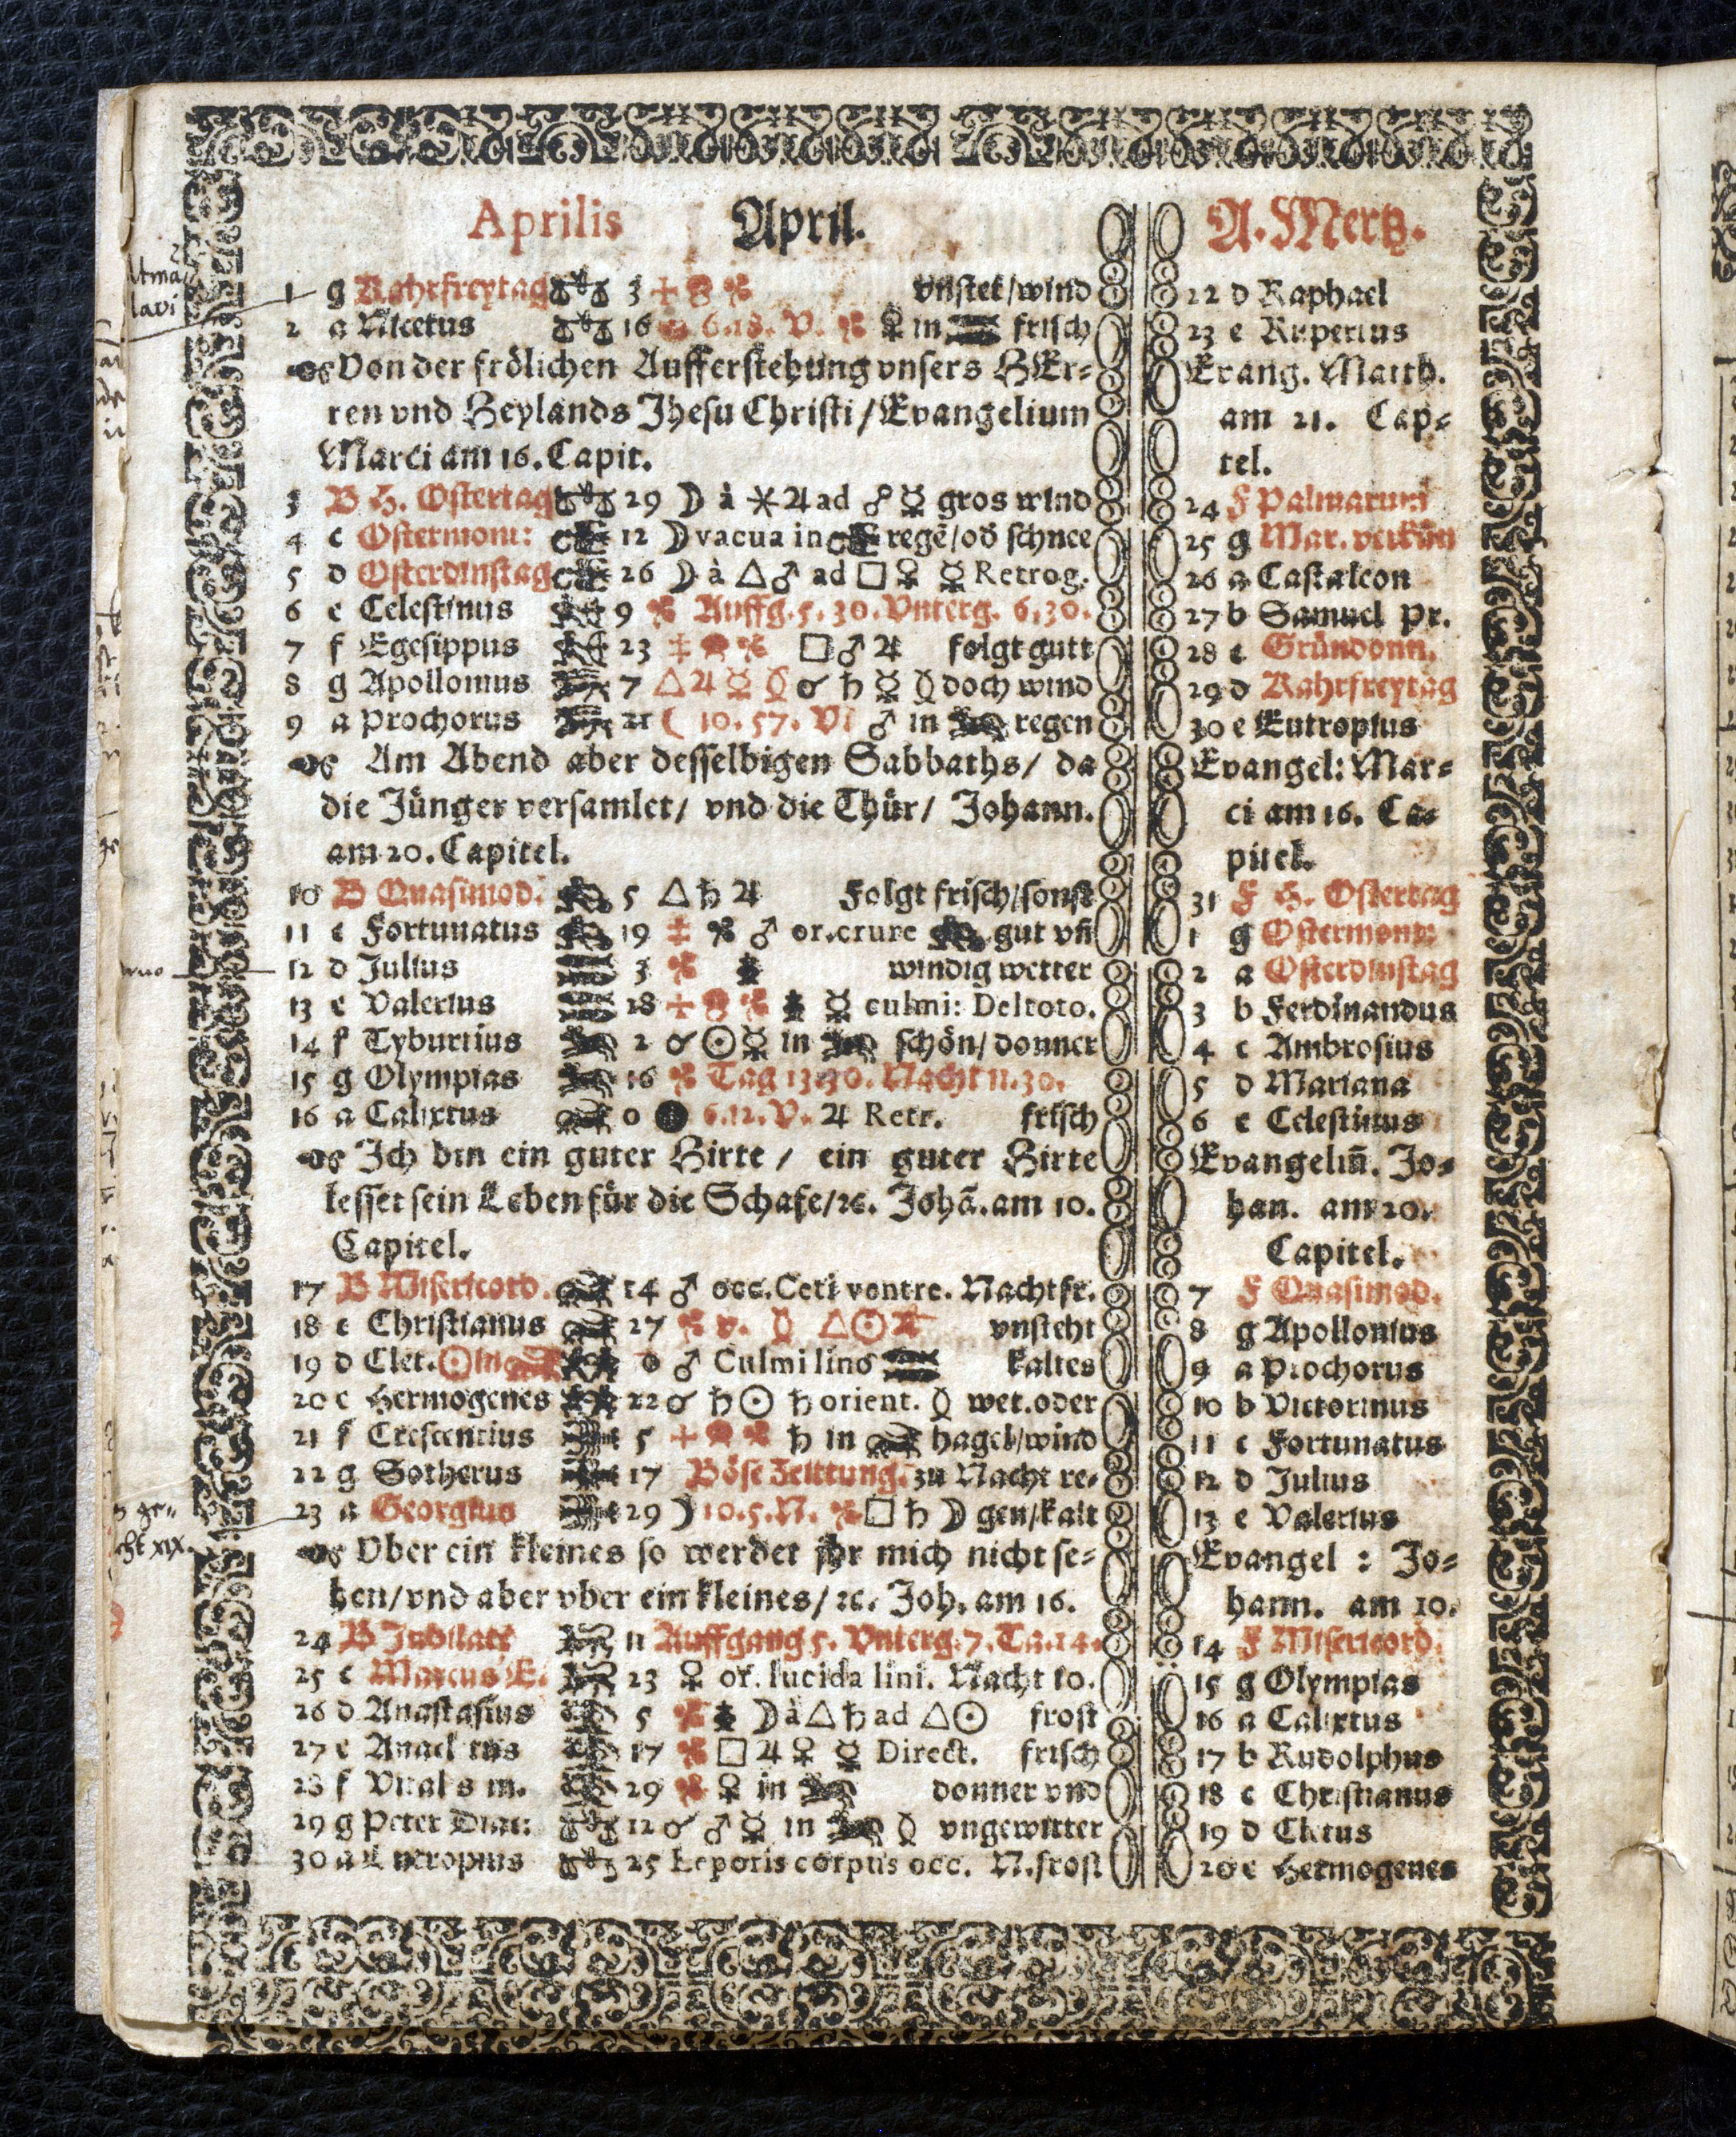 Aprilis April. A. Mertz.
1 g Kahrfreytag 3 vnstet/wind 22 d Raphael
2 a Nicetus 16 6.18. V. ♀ in frisch 23 e Rupertus
Von der frölichen Aufferstehung vnsers HEr- Evang. Matth.
ren vnd Heylands Jhesu Christi / Evangelium am 21. Cap-
Marci am 16. Capit. tel.
3 B H. Ostertag 29 ☽ à ⚹ ♃ ad ☍ ☿ gros wind 24 F Palmarum
4 c Ostermont: 12 ☽ vacua in regẽ/od schnee 25 g Mar. verkün
5 d Osterdinstag 26 ☽ à △ ♂ ad □ ♀ ☿ Retrog. 26 a Castaleon
6 e Celestinus 9 Auffg. 5. 30. Vnterg. 6. 30. 27 b Samuel pr.
7 f Egesippus 23 □ ♂ ♃ folgt gutt 28 c Gründonn.
8 g Apollonius 7 △ ♃ ☿ ☌ ♄ ☿ doch wind 29 d Kahrfreytag
9 a Prochorus 21 ☾ 10. 57. V ♂ in regen 30 e Eutropius
Am Abend aber desselbigen Sabbaths/ da Evangel: Mar-
die Jünger versamlet/ vnd die Thür/ Johann. ci am 16. Ca-
am 20. Capitel. pitel.
10 B Quasimod. 5 △ ♄ ♃ Folgt frisch/sonst 31 F H. Ostertag
11 c Fortunatus 19 ♂ or. crure gut vñ 1 g Ostermont:
12 d Julius 3 windig wetter 2 a Osterdinstag
13 e Valerius 18 ☿ culmi: Deltoto. 3 b Ferdinandus
14 f Tyburtius 2 ☌ ☉ ☿ in schön/ donner 4 c Ambrosius
15 g Olympias 16 Tag 13. 30. Nacht 11. 30. 5 d Mariana
16 a Calixtus 0 6. 12. V. ♃ Retr. frisch 6 e Celestinus
Ich bin ein guter Hirte / ein guter Hirte Evangeliũ. Jo-
lesset sein Leben für die Schafe/ꝛc. Johã. am 10. han. am 20.
Capitel. Capitel.
17 B Misericord. 14 ♂ occ. Ceti ventre. Nachtfr. 7 F Quasimod.
18 c Christianus 27 v. △ ☉ ♃ vnsteht 8 g Apollonius
19 d Clet. ☉ in 0 ♂ Culmi lino kaltes 9 a Prochorus
20 e Hermogenes 22 ☌ ♄ ☉ ♄ orient. wet. oder 10 b Victorinus
21 f Crescentius 5 ♄ in hagel/wind 11 c Fortunatus
22 g Sotherus 17 Böse Zeittung. zu Nacht re- 12 d Julius
23 a Georgius 29 ☽ 10. 5. N. □ ♄ ☽ gen/kalt 13 e Valerius
Vber ein kleines so werdet jhr mich nicht se- Evangel : Jo-
hen/ vnd aber vber ein kleines/ ꝛc. Joh. am 16. hann. am 10.
24 B Jubilate 11 Auffgang 5. Vnterg. 7. Ta. 14. 14 F Misericord.
25 c Marcus E. 23 ♀ or. lucida lini. Nacht 10. 15 g Olympias
26 d Anastasius 5 ☽ à △ ♄ ad △ ☉ frost 16 a Calixtus
27 e 17 □ ♃ ♀ ☿ Direct. frisch 17 b Rudolphus
28 f Vital s m. 29 ♀ in donner vnd 18 c Christianus
29 g Peter 12 ☌ ♂ ☿ in vngewitter 19 d Cletus
30 a 25 Leporis corpus occ. N. frost 20 e Hermogenes